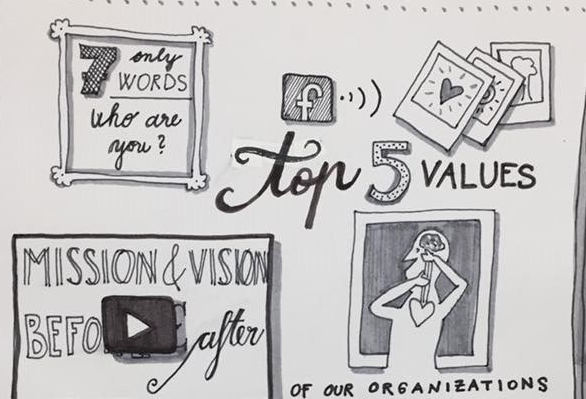 7 only
WORDS
Who are
you?
f
top 5 VALUES
MISSION & VISION
after
OF OUR ORGANIZATIONS